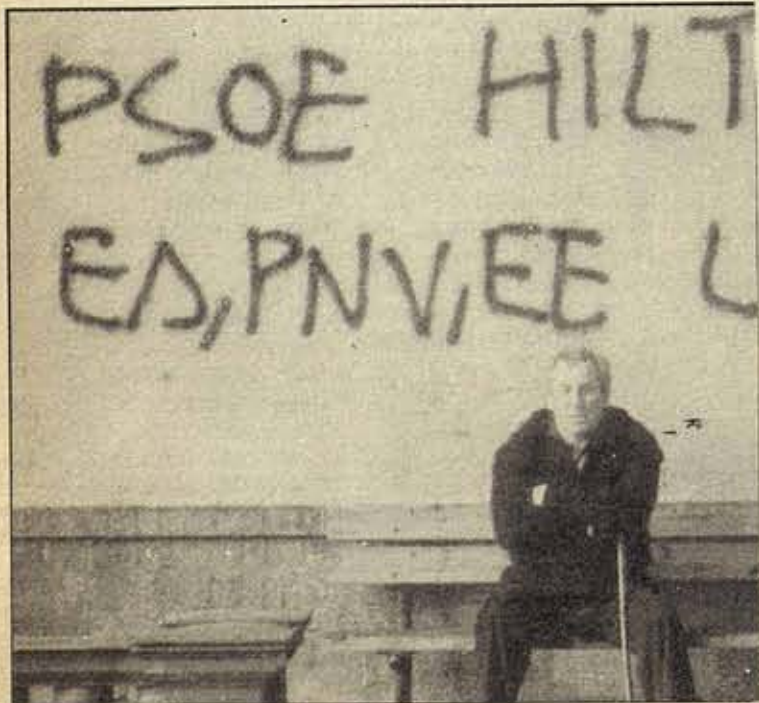 PSOE HILT
EA, PNV, EE L